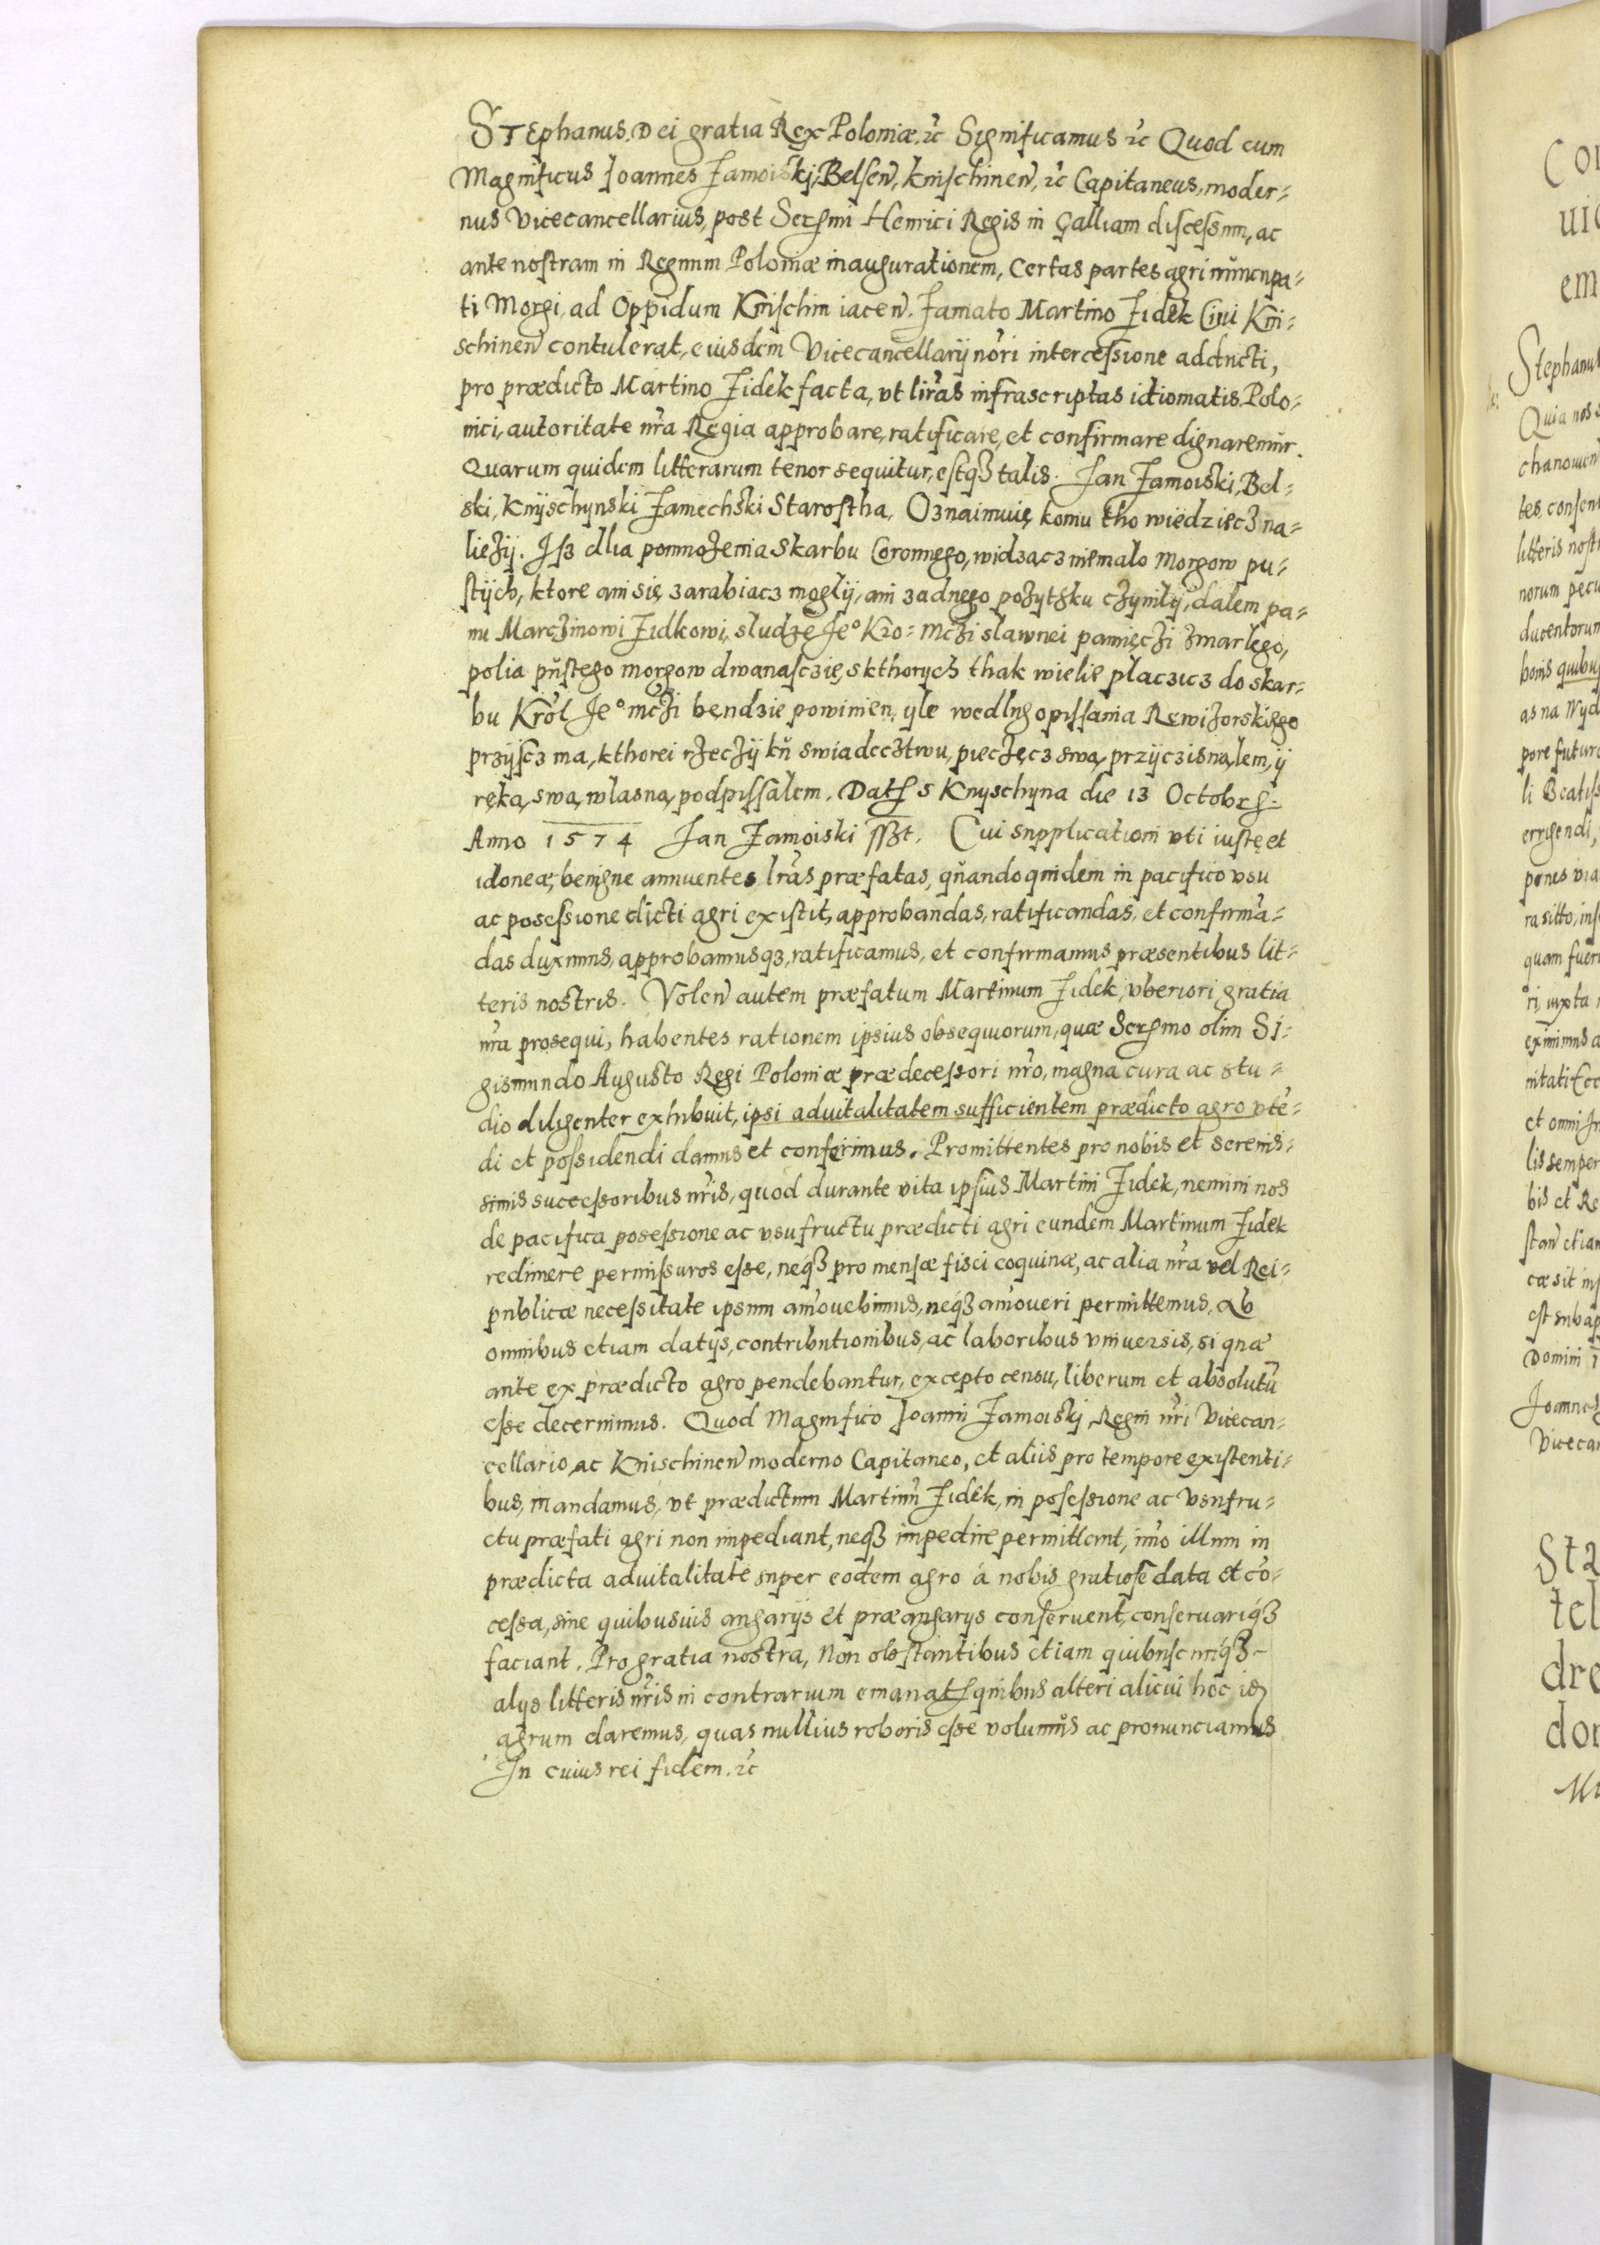 Stephanus Dei gratia Rex Poloniæ ꝛc Significamus ꝛc Quod cum
Magnificus Joannes Zamoiski, Belsen̄, Knischinen̄, ꝛc Capitaneus, moder-
nus Vicecancellarius, post Sermi Henrici Regis in Galliam discessum, ac
ante nostram in Regnum Poloniæ inaugurationem, Certas partes agri nuncupa-
ti Morgi, ad Oppidum Knischin iacen̄. Famato Martino Zidek Ciui Kni-
schinen̄ contulerat, eiusdem Vicecancellarij nr̄i intercessione adducti,
pro prædicto Martino Zidek facta, vt lr̄as infrascriptas idiomatis Polo-
nici, autoritate nr̄a Regia approbare, ratificare, et confirmare dignaremur.
Quarum quidem litterarum tenor sequitur, estqꝫ talis. Jan Zamoiski, Bel-
ski, Knyschynski Zamechski Starostha, Oznaimuię komu tho wiedziecz na-
liezÿ. Jsz dlia pomnozenia Skarbu Coronnego, widzącz niemalo Morgow pu-
stÿch, ktore ani się zarabiacz moglÿ, ani zadnego pozytku czynilÿ, dalem pa-
nu Marczinowi Zidkowi, sludze Jeº Kro: mczi slawnei pamięczi zmarlego,
polia pŭstego morgow dwanasczie, s kthorych thak wielie placzicz do skar-
bu Krol Jeº mczi bendzie powinien, yle wedlug opissania Rewizorskiego
przÿscz ma, kthorei rzeczÿ kŭ swiadecztwu, pieczęcz swą, przyczisnąlem, ÿ
ręką, swą, wlasną, podpissalem. Datꝭ s Knyschyna die 13 Octobrꝭ.
Anno 1574 Jan Zamoiski sszt. Cui supplicationi vti iustę et
idoneæ, benigne annuentes lr̄as præfatas, quandoquidem in pacifico vsu
ac posessione dicti agri existit, approbandas, ratificandas, et confirmā-
das duximus, approbamusqꝫ, ratificamus, et confirmamus præsentibus lit-
teris nostris. Volen̄ autem præfatum Martinum Zidek, vberiori gratia
nr̄a prosequi, habentes rationem ipsius obsequiorum, quæ Sermo olim Si-
gismundo Augusto Regi Poloniæ prædecessori nr̄o, magna cura ac stu-
dio diligenter exhibuit, ipsi aduitalitatem sufficientem prædicto agro vtē-
di et possidendi damus et conferimus. Promittentes pro nobis et serenis-
simis successoribus nr̄is, quod durante vita ipsius Martini Zidek, nemini nos
de pacifica posessione ac vsufructu prædicti agri eundem Martinum Zidek
redimere permissuros esse, neqꝫ pro mensæ fisci coquinæ, ac alia nr̄a vel Rei-
publicæ necessitate ipsum amouebimus, neqꝫ amoueri permittemus, Ab
omnibus etiam datijs, contributionibus, ac laboribus vniuersis, si quæ
ante ex prædicto agro pendebantur, excepto censu, liberum et absolutū
esse decernimus. Quod Magnifico Joanni Zamoiski, Regni nr̄i Vicecan-
cellario, ac Knischinen̄ moderno Capitaneo, et aliis pro tempore existenti-
bus, mandamus, vt prædictum Martinū Zidek, in posessione ac vsufru-
ctu præfati agri non impediant, neqꝫ impedire permittent, imo illum in
prædicta aduitalitate super eodem agro á nobis gratiose data et cō-
cessa, sine quibusuis angarijs et præangarijs conseruent, conseruariqꝫ
faciant. Pro gratia nostra, Non obstantibus etiam quibuscunqꝫ
alijs litteris nr̄is in contrarium emanatꝭ quibus alteri alicui hoc
agrum daremus, quas nullius roboris esse volumus ac pronunciamus
In cuius rei fidem. ꝛc